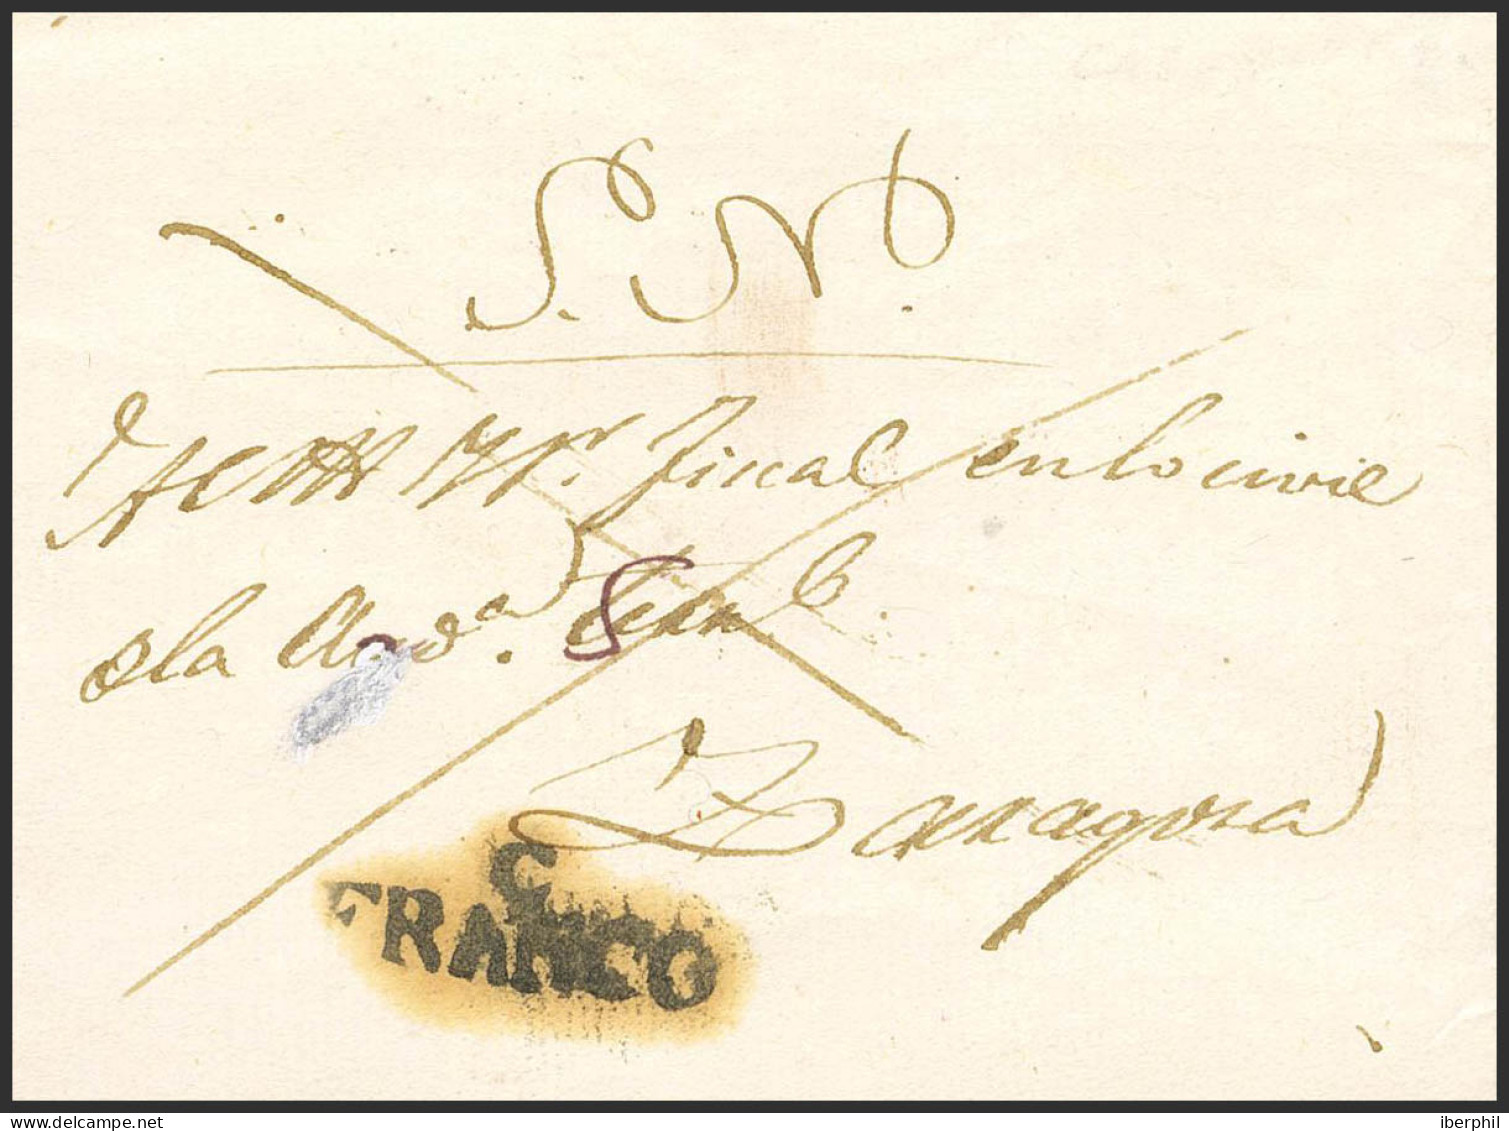 S. N.
Sr. Fiscal en lo civil
de la Aud.a Terr.l
8
Zaragoza
C
FRANCO
delcampe.net
iberphil